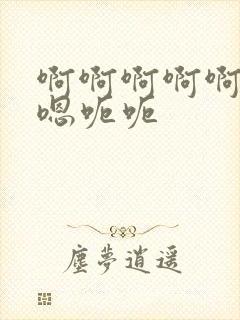 啊啊啊啊啊
嗯呃呃
塵夢逍遥